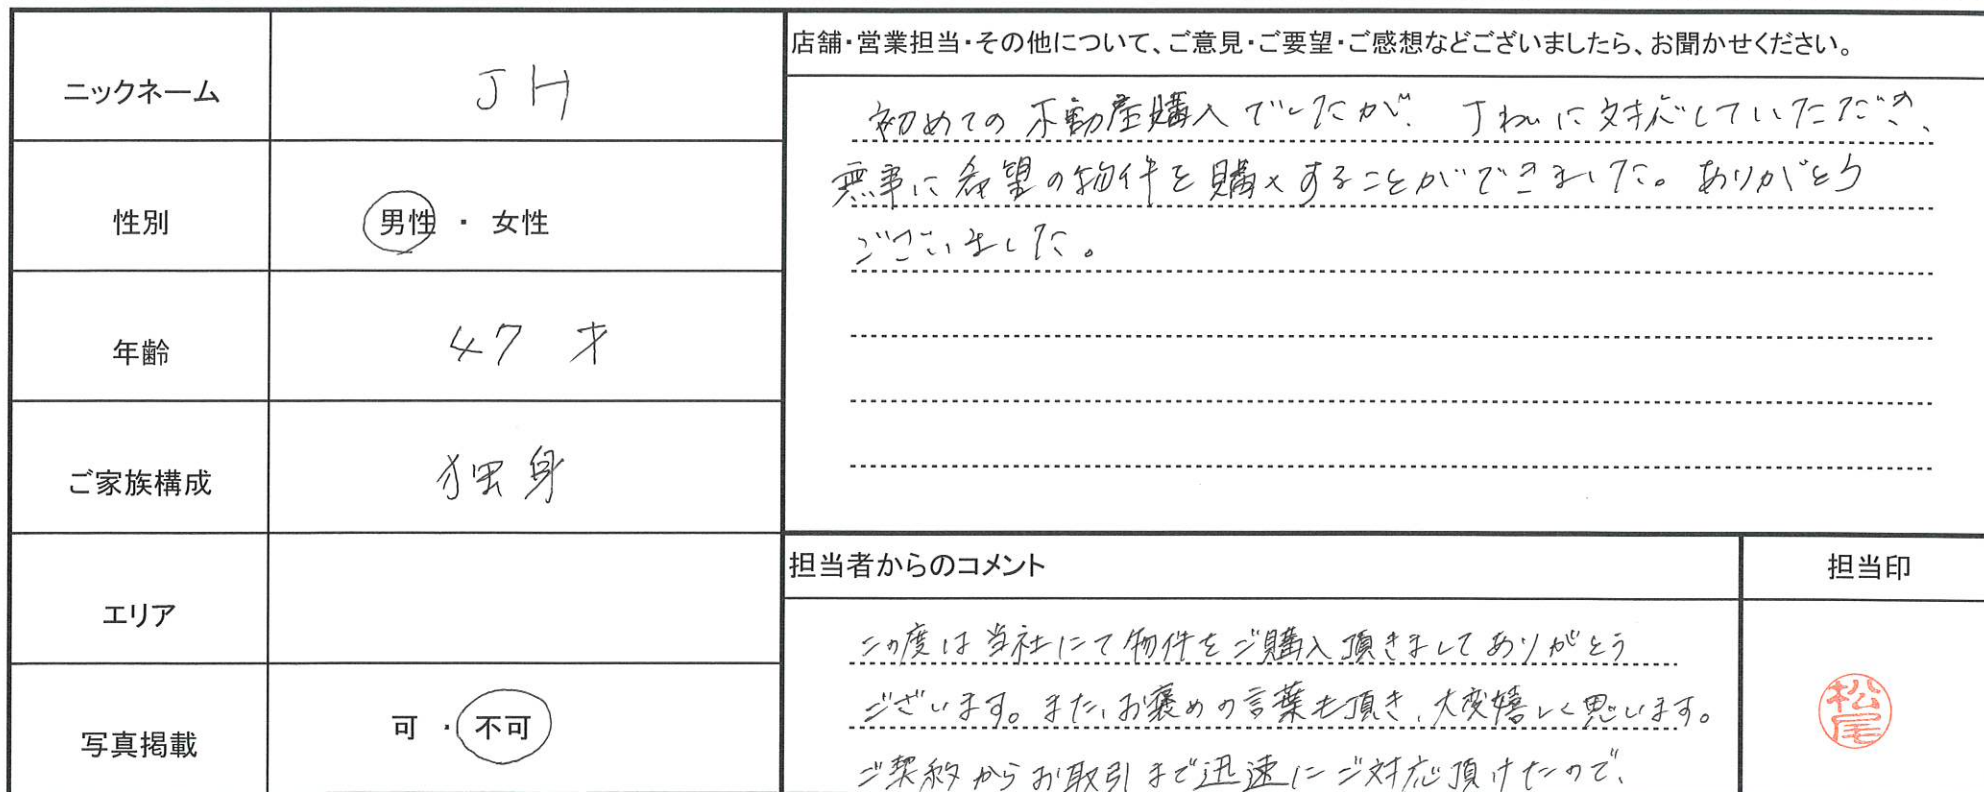 ニックネーム
JH
性別
男性 ・ 女性
年齢
47 才
ご家族構成
独身
エリア
写真掲載
可 ・ 不可
店舗・営業担当・その他について、ご意見・ご要望・ご感想などございましたら、お聞かせください。
初めての不動産購入でしたが、丁ねいに対応していただき、
無事に希望の物件を購入することができました。ありがとう
ございました。
担当者からのコメント
この度は当社にて物件をご購入頂きましてありがとう
ございます。また、お褒めの言葉も頂き、大変嬉しく思います。
ご契約からお取引まで迅速にご対応頂けたので、
担当印
松尾